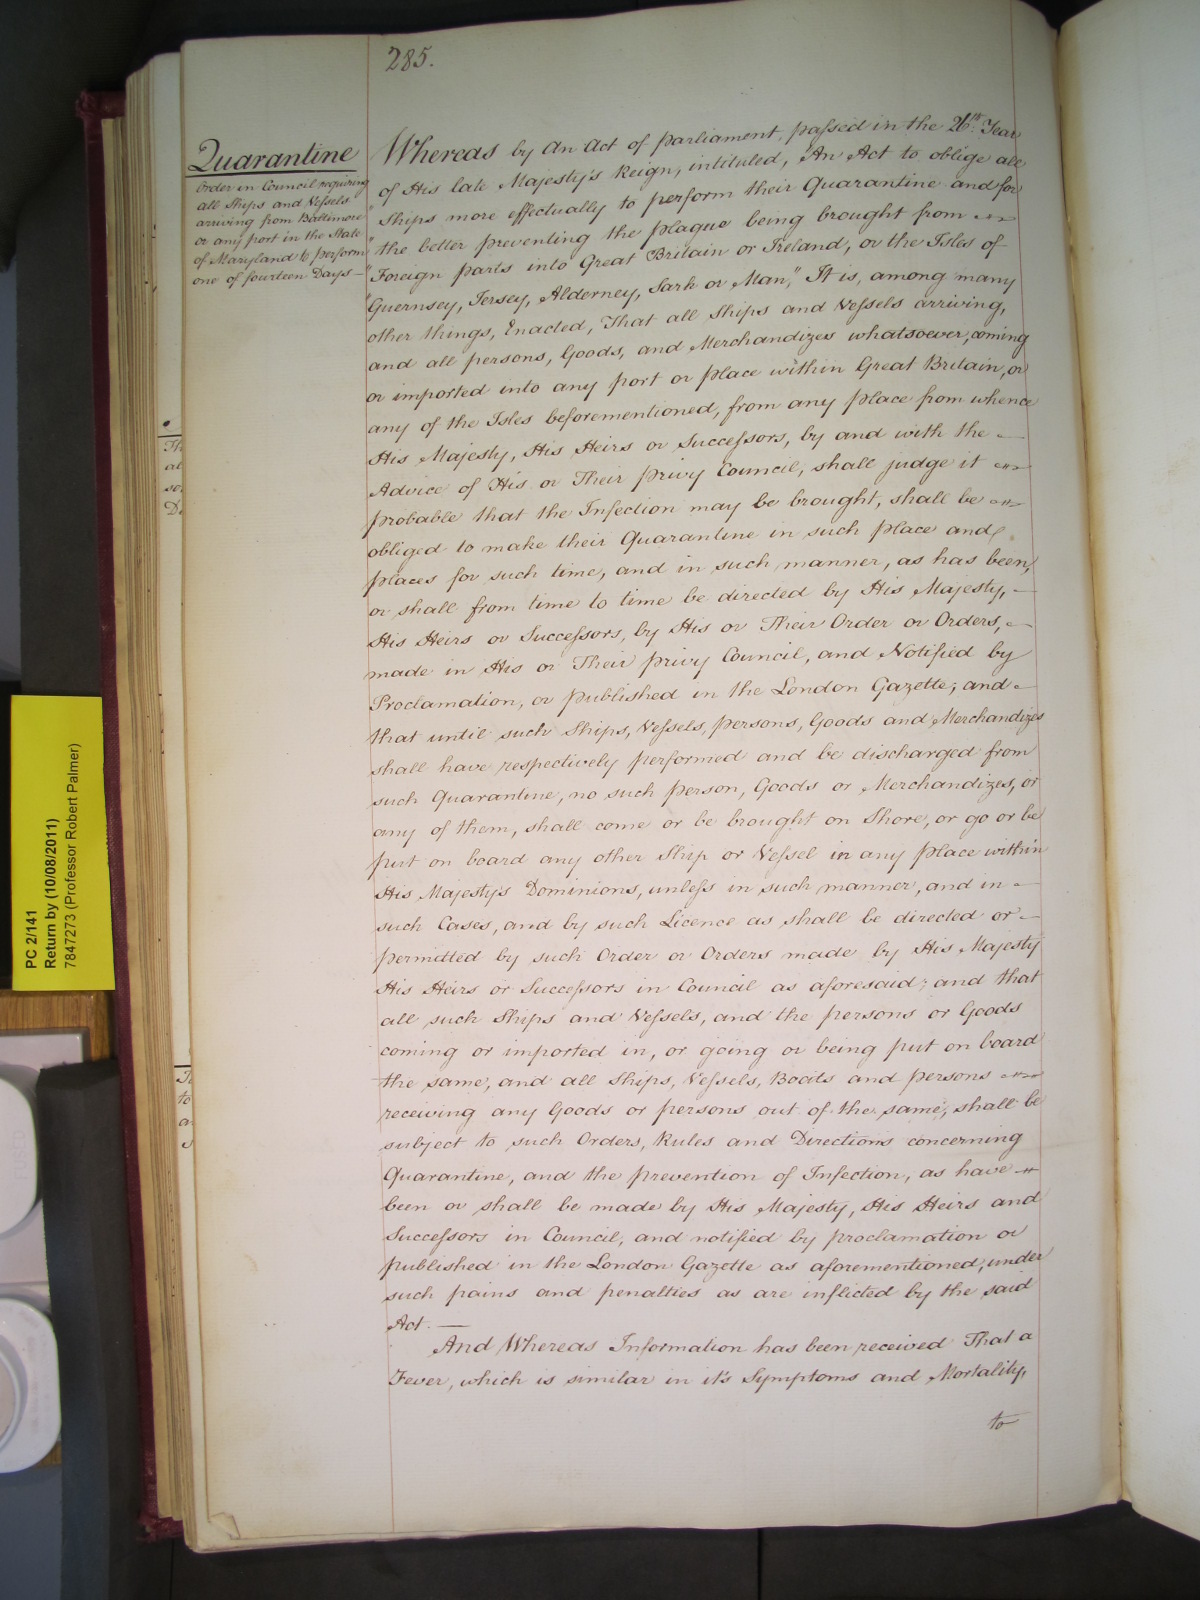 285.
Quarantine
Order in Council requiring
all Ships and Vessels
arriving from Baltimore
or any port in the State
of Maryland to perform
one of fourteen Days —
Whereas by An Act of parliament, passed in the 26th. Year
of His late Majesty's Reign, intituled, "An Act to oblige all
"Ships more effectually to perform their Quarantine and for
"the better preventing the plague being brought from
"Foreign parts into Great Britain or Ireland, or the Isles of
"Guernsey, Jersey, Alderney, Sark or Man," It is, among many
other things, Enacted, That all Ships and Vessels arriving,
and all persons, Goods, and Merchandizes whatsoever, coming
or imported into any port or place within Great Britain, or
any of the Isles beforementioned, from any place from whence
His Majesty, His Heirs or Successors, by and with the —
Advice of His or Their privy Council, shall judge it
probable that the Infection may be brought, shall be
obliged to make their Quarantine in such place and
places for such time, and in such manner, as has been,
or shall from time to time be directed by His Majesty, —
His Heirs or Successors, by His or Their Order or Orders, —
made in His or Their privy Council, and Notified by
Proclamation, or published in the London Gazette; and —
that until such Ships, Vessels, persons, Goods and Merchandizes
shall have respectively performed and be discharged from
such Quarantine, no such person, Goods or Merchandizes, or
any of them, shall come or be brought on Shore, or go or be
put on board any other Ship or Vessel in any place within
His Majesty's Dominions, unless in such manner, and in —
such Cases, and by such Licence as shall be directed or —
permitted by such Order or Orders made by His Majesty
His Heirs or Successors in Council as aforesaid; and that
all such Ships and Vessels, and the persons or Goods
coming or imported in, or going or being put on board
the same, and all Ships, Vessels, Boats and persons
receiving any Goods or persons out of the same, shall be
subject to such Orders, Rules and Directions concerning
Quarantine, and the prevention of Infection, as have
been or shall be made by His Majesty, His Heirs and
Successors in Council, and notified by proclamation or
published in the London Gazette as aforementioned, under
such pains and penalties as are inflicted by the said
Act. —
And Whereas Information has been received That a
Fever, which is similar in it's Symptoms and Mortality,
to
PC 2/141
Return by (10/08/2011)
7847273 (Professor Robert Palmer)